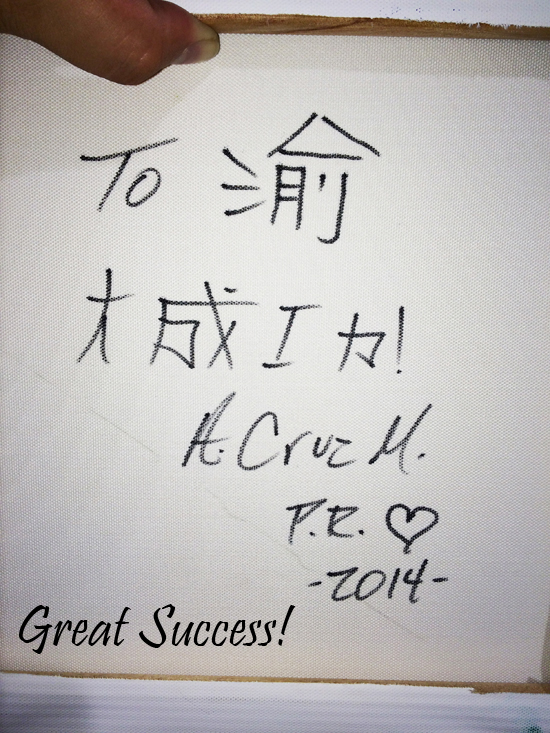 To 渝
大成功!
A. Cruz M.
P.R. ♡
-2014-
Great Success!